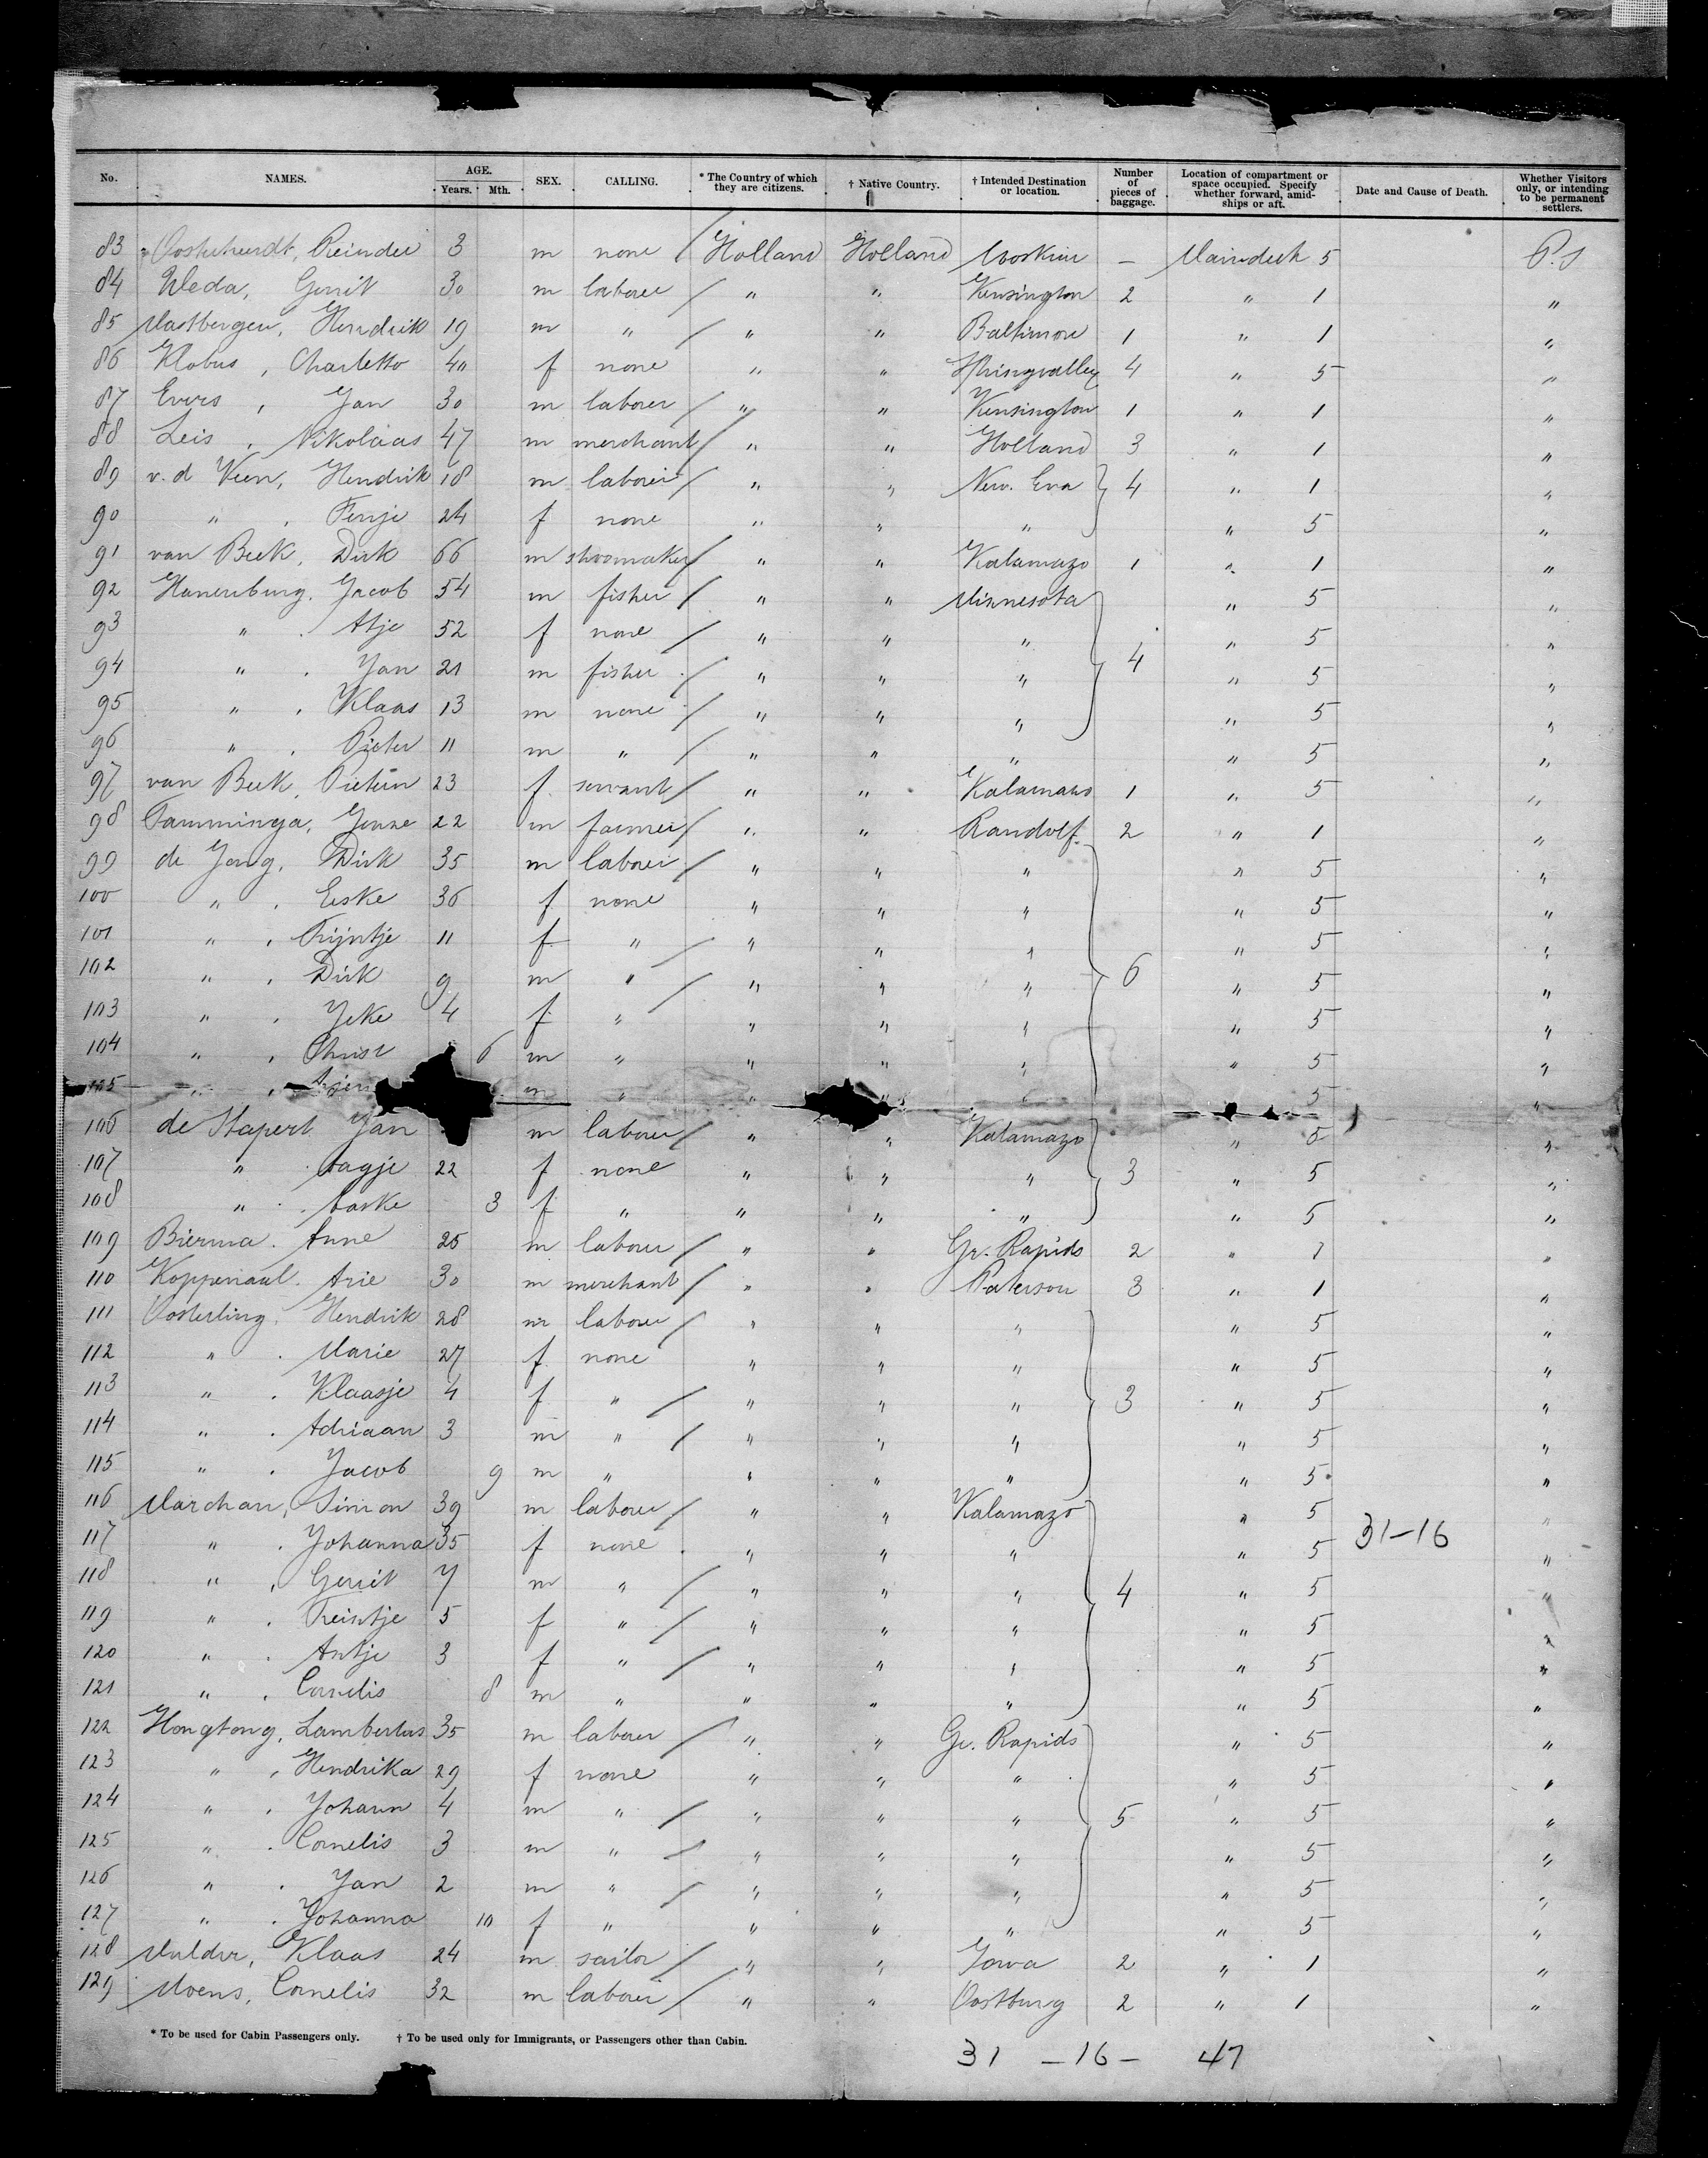 No. NAMES. AGE. Years. Mth. SEX. CALLING. * The Country of which they are citizens. † Native Country. † Intended Destination or location. Number of pieces of baggage. Location of compartment or space occupied. Specify whether forward, amidships or aft. Date and Cause of Death. Whether Visitors only, or intending to be permanent settlers.
83 Reinder 3 m none / Holland Holland - Maindeck 5 P.S
84 Weda, Gerrit 30 m laborer / " " Kensington 2 " 1 "
85 Mastbergen, Hendrik 19 m " / " " Baltimore 1 " 1 "
86 Klobus, Charletto 40 f none " " Springvalley 4 " 5 "
87 Evers, Jan 30 m laborer / " " Kensington 1 " 1 "
88 Leis, Nikolaas 47 m merchant / " " Holland 3 " 1 "
89 v. d Veen, Hendrik 18 m laborer / " " New. Era 4 " 1 "
90 " . Fenje 24 f none " " " " 5 "
91 van Beek, Dirk 66 m shoomaker / " " Kalamazo 1 " 1 "
92 Hanenburg, Jacob 54 m fisher / " " Minnesota " 5 "
93 " . Atje 52 f none / " " " " 5 "
94 " . Jan 21 m fisher / " " " 4 " 5 "
95 " . Klaas 13 m none / " " " " 5 "
96 " . Pieter 11 m " / " " " " 5 "
97 van Beek, 23 f servant / " " Kalamazo 1 " 5 "
98 Tamminga, 22 m farmer / " " Randolf. 2 " 1 "
99 de Jong, Dirk 35 m laborer / " " " " 5 "
100 " . Eeske 36 f none " " " " 5 "
101 " . Trijntje 11 f " / " " " " 5 "
102 " . Dirk 9 m " / " " " 6 " 5 "
103 " . Jeke 4 f " " " " " 5 "
104 " . Christ 6 m " " " " " 5 "
105 " . m " " " " 5 "
106 de Stapert Jan m laborer / " " Kalamazo " 5 "
107 " . Aagje 22 f none " " " 3 " 5 "
108 " . Baske 3 f " " " " " 5 "
109 Bierma. Anne 25 m laborer / " " Gr. Rapids 2 " 1 "
110 Koppenaal. Arie 30 m merchant / " " Paterson 3 " 1 "
111 Oosterling, Hendrik 28 m laborer / " " " " 5 "
112 " . Marie 27 f none " " " " 5 "
113 " . Klaasje 4 f " / " " " 3 " 5 "
114 " . Adriaan 3 m " / " " " " 5 "
115 " . Jacob 9 m " " " " " 5 "
116 Marchan, Simon 39 m laborer / " " Kalamazo " 5 "
117 " . Johanna 35 f none " " " " 5 31-16 "
118 " . Gerrit 7 m " / " " " 4 " 5 "
119 " . Treintje 5 f " / " " " " 5 "
120 " . Antje 3 f " / " " " " 5 "
121 " . Cornelis 8 m " " " " " 5 "
122 Hongtong, Lambertus 35 m laborer / " " Gr. Rapids " 5 "
123 " . Hendrika 29 f none " " " " 5 "
124 " . Johann 4 m " / " " " 5 " 5 "
125 " . Cornelis 3 m " / " " " " 5 "
126 " . Jan 2 m " / " " " " 5 "
127 " . Johanna 10 f " " " " " 5 "
128 Mulder, Klaas 24 m sailor / " " Iowa 2 " 1 "
129 Moens, Cornelis 32 m laborer / " " Oostburg 2 " 1 "
* To be used for Cabin Passengers only. † To be used only for Immigrants, or Passengers other than Cabin.
31 - 16 - 47